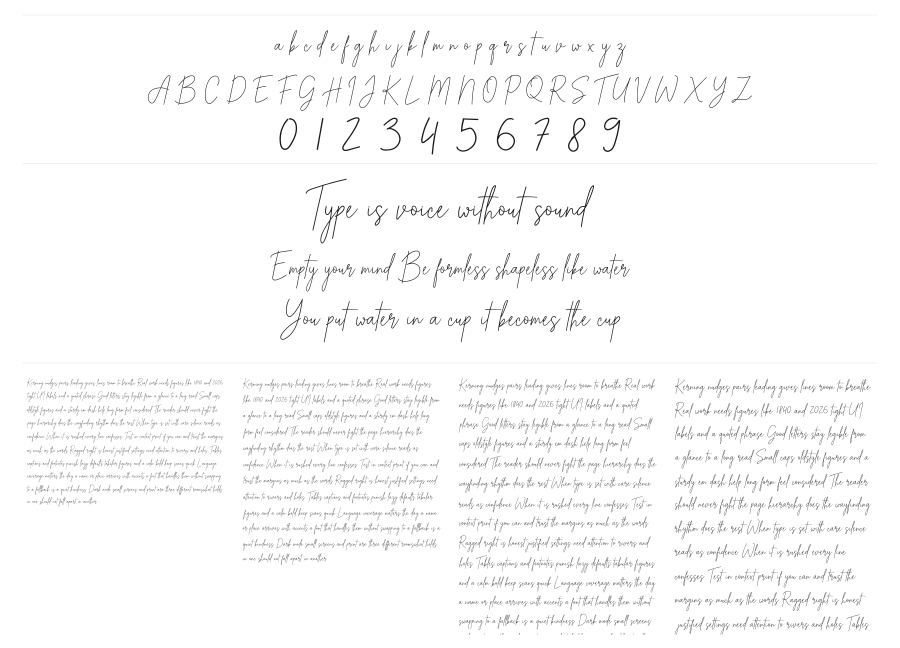 a b c d e f g h i j k l m n o p q r s t u v w x y z
A B C D E F G H I J K L M N O P Q R S T U V W X Y Z
0 1 2 3 4 5 6 7 8 9
Type is voice without sound
Empty your mind Be formless shapeless like water
You put water in a cup it becomes the cup
Kerning nudges pairs leading gives lines room to breathe Real work needs figures like 1890 and 2026
tight UI labels and a quoted phrase Good letters stay legible from a glance to a long read Small caps
oldstyle figures and a sturdy en dash help long form feel considered The reader should never fight the
page hierarchy does the wayfinding rhythm does the rest When type is set with care silence reads as
confidence When it is rushed every line confesses Test in context print if you can and trust the margins
as much as the words Ragged right is honest justified settings need attention to rivers and holes Tables
captions and footnotes punish lazy defaults tabular figures and a calm bold keep scans quick Language
coverage matters the day a name or place arrives with accents a font that handles them without swapping
to a fallback is a quiet kindness Dark mode small screens and print are three different rooms what holds
in one should not fall apart in another
Kerning nudges pairs leading gives lines room to breathe Real work needs figures
like 1890 and 2026 tight UI labels and a quoted phrase Good letters stay legible from
a glance to a long read Small caps oldstyle figures and a sturdy en dash help long
form feel considered The reader should never fight the page hierarchy does the
wayfinding rhythm does the rest When type is set with care silence reads as
confidence When it is rushed every line confesses Test in context print if you can and
trust the margins as much as the words Ragged right is honest justified settings need
attention to rivers and holes Tables captions and footnotes punish lazy defaults tabular
figures and a calm bold keep scans quick Language coverage matters the day a name
or place arrives with accents a font that handles them without swapping to a fallback is a
quiet kindness Dark mode small screens and print are three different rooms what holds
in one should not fall apart in another
Kerning nudges pairs leading gives lines room to breathe Real work
needs figures like 1890 and 2026 tight UI labels and a quoted
phrase Good letters stay legible from a glance to a long read Small
caps oldstyle figures and a sturdy en dash help long form feel
considered The reader should never fight the page hierarchy does the
wayfinding rhythm does the rest When type is set with care silence
reads as confidence When it is rushed every line confesses Test in
context print if you can and trust the margins as much as the words
Ragged right is honest justified settings need attention to rivers and
holes Tables captions and footnotes punish lazy defaults tabular figures
and a calm bold keep scans quick Language coverage matters the day
a name or place arrives with accents a font that handles them without
swapping to a fallback is a quiet kindness Dark mode small screens
Kerning nudges pairs leading gives lines room to breathe
Real work needs figures like 1890 and 2026 tight UI
labels and a quoted phrase Good letters stay legible from
a glance to a long read Small caps oldstyle figures and a
sturdy en dash help long form feel considered The reader
should never fight the page hierarchy does the wayfinding
rhythm does the rest When type is set with care silence
reads as confidence When it is rushed every line
confesses Test in context print if you can and trust the
margins as much as the words Ragged right is honest
justified settings need attention to rivers and holes Tables